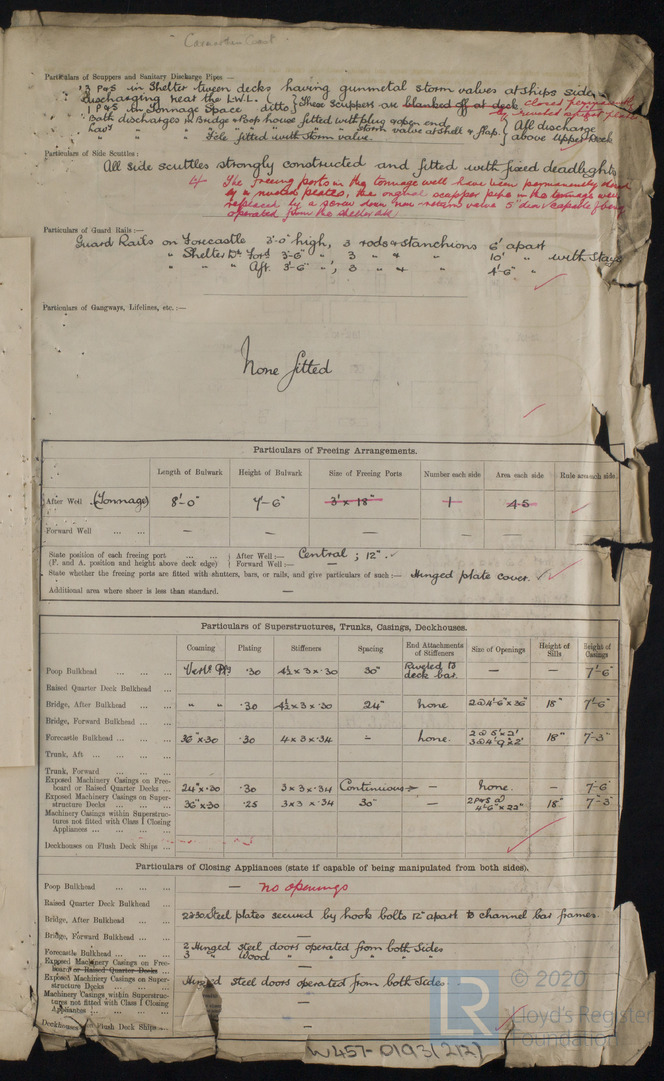 Particulars of Scuppers and Sanitary Discharge Pipes —
3 P&S in Shelter 'tween decks having gunmetal storm valves at ships side
discharging near the L.W.L.
1 P&S in Tonnage Space ditto } These scuppers are blanked off at deck closed permanently by riveted steel plates
Both discharges in Bridge & Poop house fitted with plug & open end
Lavy " " " " storm valve at shell & flap. } All discharge above Upper Deck
" " " Fcle fitted with storm valve.
Particulars of Side Scuttles :
All side scuttles strongly constructed and fitted with fixed deadlights
The freeing ports in the tonnage well have been permanently closed
by a riveted plates, the original scupper pipe in the tonnage well
replaced by a screw down non-return valve 5" dia capable of being
operated from the shelter dk.
Particulars of Guard Rails :—
Guard Rails on Forecastle 3'-0" high, 3 rods & stanchions 6' apart
" Shelter Dk Ford 3'-6" " , 3 " " " 10' " with Stays
" " " Aft 3'-6" " ; 3 " " " 4'-6" "
Particulars of Gangways, Lifelines, etc. :—
None fitted
Particulars of Freeing Arrangements.
Length of Bulwark Height of Bulwark Size of Freeing Ports Number each side Area each side Rule area each side.
After Well (Tonnage) 8'-0" 7'-6" 3' x 18" 1 4.5
Forward Well ... ... — — — — —
State position of each freeing port ... ... } After Well :— Central ; 12".
(F. and A. position and height above deck edge) } Forward Well :— —
State whether the freeing ports are fitted with shutters, bars, or rails, and give particulars of such :— Hinged plate cover.
Additional area where sheer is less than standard. —
Particulars of Superstructures, Trunks, Casings, Deckhouses.
Coaming Plating Stiffeners Spacing End Attachments of Stiffeners Size of Openings Height of Sills Height of Casings
Poop Bulkhead ... ... ... .30 4½ x 3 x .30 30" Riveted to deck bar. — — 7'-6"
Raised Quarter Deck Bulkhead ...
Bridge, After Bulkhead ... ... " " .30 4½ x 3 x .30 24" none 2 @ 4'-6" x 36" 18" 7'-6"
Bridge, Forward Bulkhead ... ...
Forecastle Bulkhead ... ... ... 36" x .30 .30 4 x 3 x .34 — none. 18" 7'-3"
Trunk, Aft ... ... ...
Trunk, Forward ... ... ...
Exposed Machinery Casings on Free-
board or Raised Quarter Decks ... 24" x .30 .30 3 x 3 x .34 Continuous — none. — 7'-6"
Exposed Machinery Casings on Super-
structure Decks ... ... ... 36" x 30 .25 3 x 3 x .34 30" — 2 P&S @ 4'-6" x 23" 18" 7'-3"
Machinery Casings within Superstruc-
tures not fitted with Class I Closing
Appliances ... ... ... ...
Deckhouses on Flush Deck Ships ...
Particulars of Closing Appliances (state if capable of being manipulated from both sides).
Poop Bulkhead ... ... ... — no openings
Raised Quarter Deck Bulkhead ...
Bridge, After Bulkhead ... ... Steel plates secured by hook bolts 12" apart to channel bar frames.
Bridge, Forward Bulkhead ... ... —
Forecastle Bulkhead ... ... ... 2 Hinged steel doors operated from both sides
3 " Wood " " " " "
Exposed Machinery Casings on Free-
board or Raised Quarter Decks ... —
Exposed Machinery Casings on Super-
structure Decks ... ... ... Hinged steel doors operated from both sides.
Machinery Casings within Superstruc-
tures not fitted with Class I Closing
Appliances ... ... ... —
Deckhouses on Flush Deck Ships ... —
LR
© 2020
Lloyd's Register
Foundation
W457-0193(2/2)